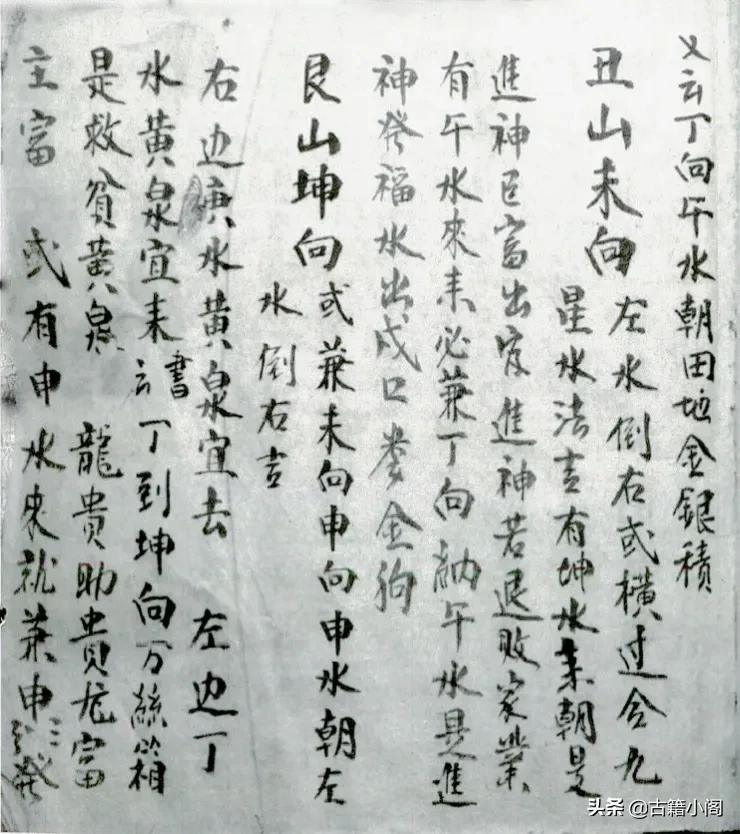 又云丁向午水朝田地金銀積
丑山未向左水倒右或橫过合九
星水法吉有坤水来朝是
進神巨富出官進神若退敗家業
有午水來来必兼丁向納午水是進
神發福水出戍口娄金狗
艮山坤向或兼未向申向申水朝左
水倒右吉
右边庚水黄泉宜去 左边丁
水黄泉宜来書云丁到坤向万絲箱
是救貧黄泉 龍貴助貴尨富
主富 或有申水來就兼申
头条 @古籍小阁